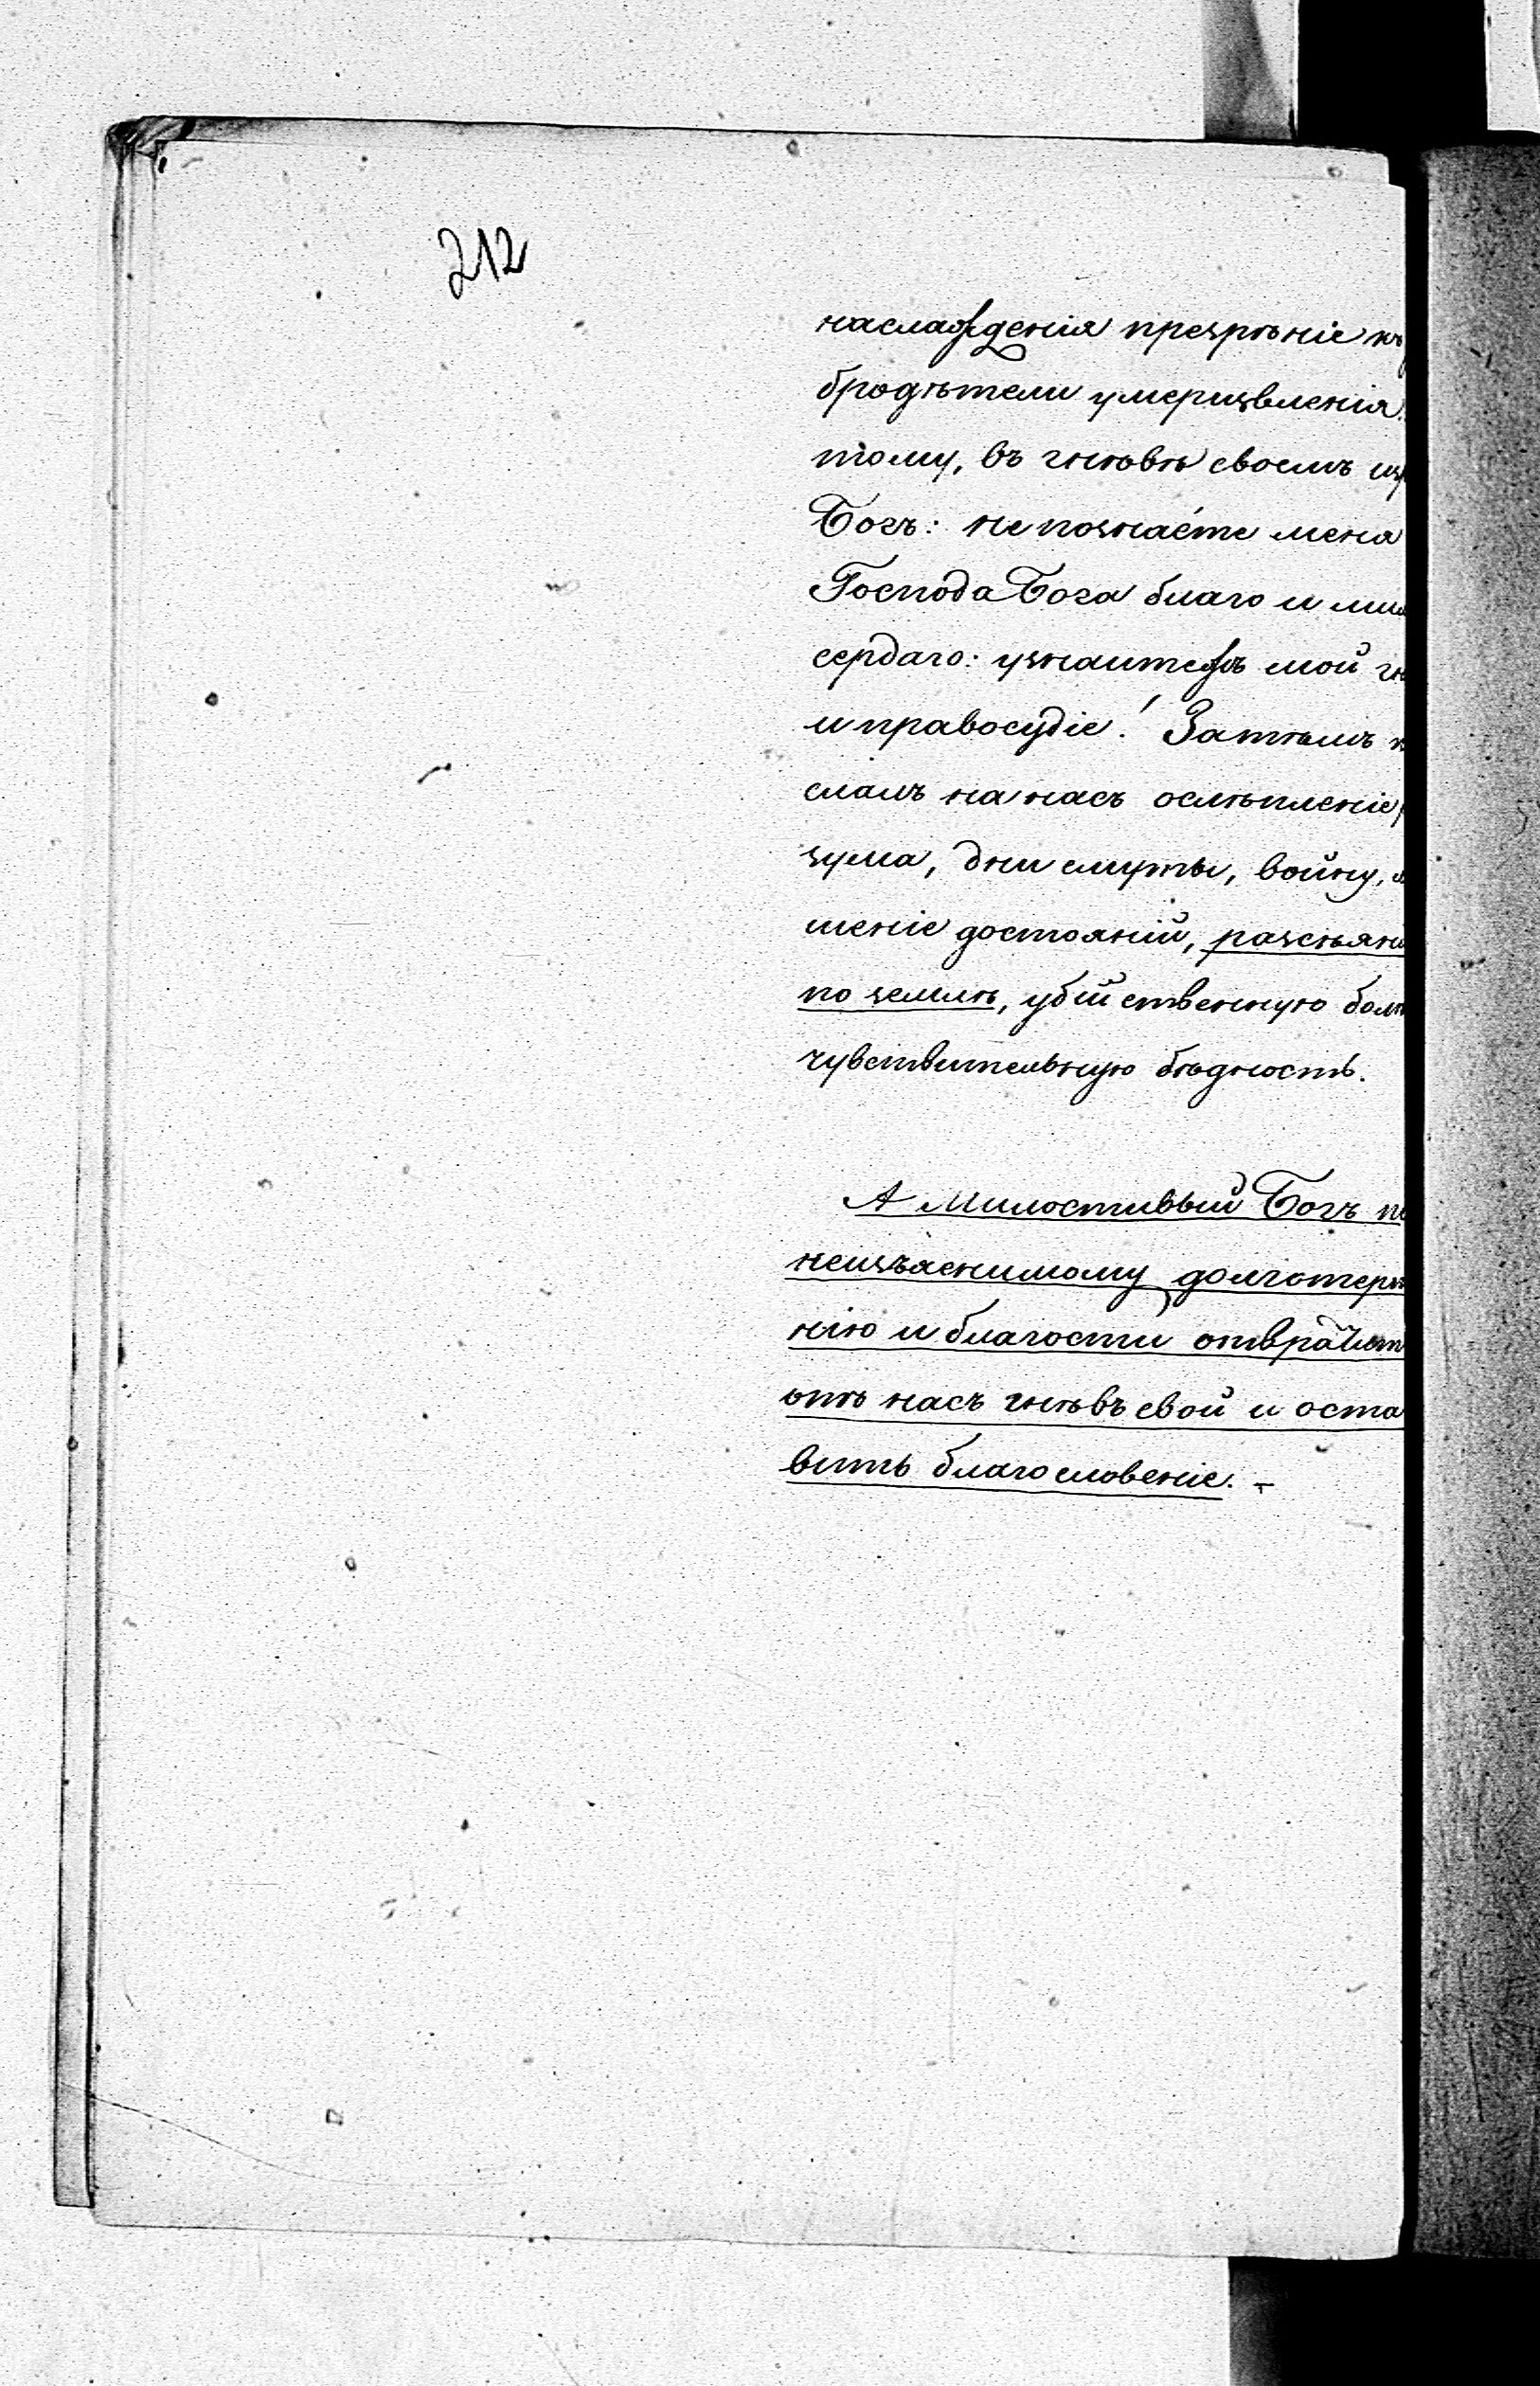 212
наслажденія презрѣніе къ
бродѣтели умерщвленія.
тому, въ гнѣвѣ своемъ
Богъ: не познаéте меня
Господа Бога благо и мил
сердаго: узнаитежъ мой гн
и правосудіе! Затѣмъ
слалъ на насъ ослѣпленіе
зума, дни смуты, войну,
шеніе достояній, разсѣяні
по землѣ, убійственную бол
чувствительную бѣдность.
А Милостивый Богъ по
неизъяснимому долготерп
нію и благости отвратит
отъ насъ гнѣвъ свой и оста
вить благословеніе. -